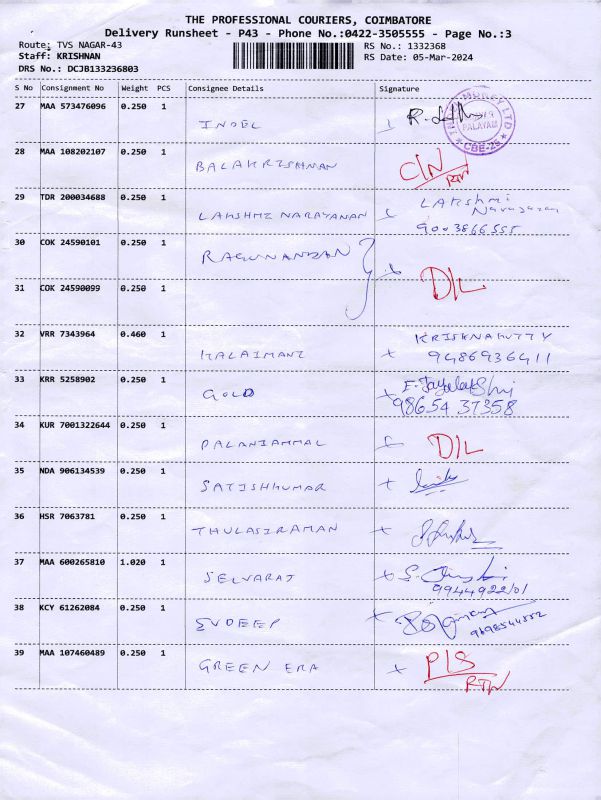 THE PROFESSIONAL COURIERS, COIMBATORE
Delivery Runsheet - P43 - Phone No.:0422-3505555 - Page No.:3
Route: TVS NAGAR-43
RS No.: 1332368
Staff: KRISHNAN
RS Date: 05-Mar-2024
DRS No.: DCJB133236803
S No Consignment No Weight PCS Consignee Details Signature
27 MAA 573476096 0.250 1
INDEL R.
PALAYAM
CBE-25
28 MAA 108202107 0.250 1
BALAKRISHNAN C/N
RTN
29 TDR 200034688 0.250 1 LAKShmi
Narayanan
LAKSHMI NARAYANAN 9003866555
30 COK 24590101 0.250 1
RAGUNANDAN
D/L
31 COK 24590099 0.250 1
32 VRR 7343964 0.460 1 KRISHNAKUTTY
KALAIMANI 9486936411
33 KRR 5258902 0.250 1 E. Jayalakshmi
GOLD 98654 37358
34 KUR 7001322644 0.250 1
PALANIAMMAL D/L
35 NDA 906134539 0.250 1
SATISHKUMAR
36 HSR 7063781 0.250 1
THULASIRAMAN
37 MAA 600265810 1.020 1
SELVARAJ S.
9944922101
38 KCY 61262084 0.250 1
SUDEEP 9698544552
39 MAA 107460489 0.250 1
GREEN ERA P/S
RTN